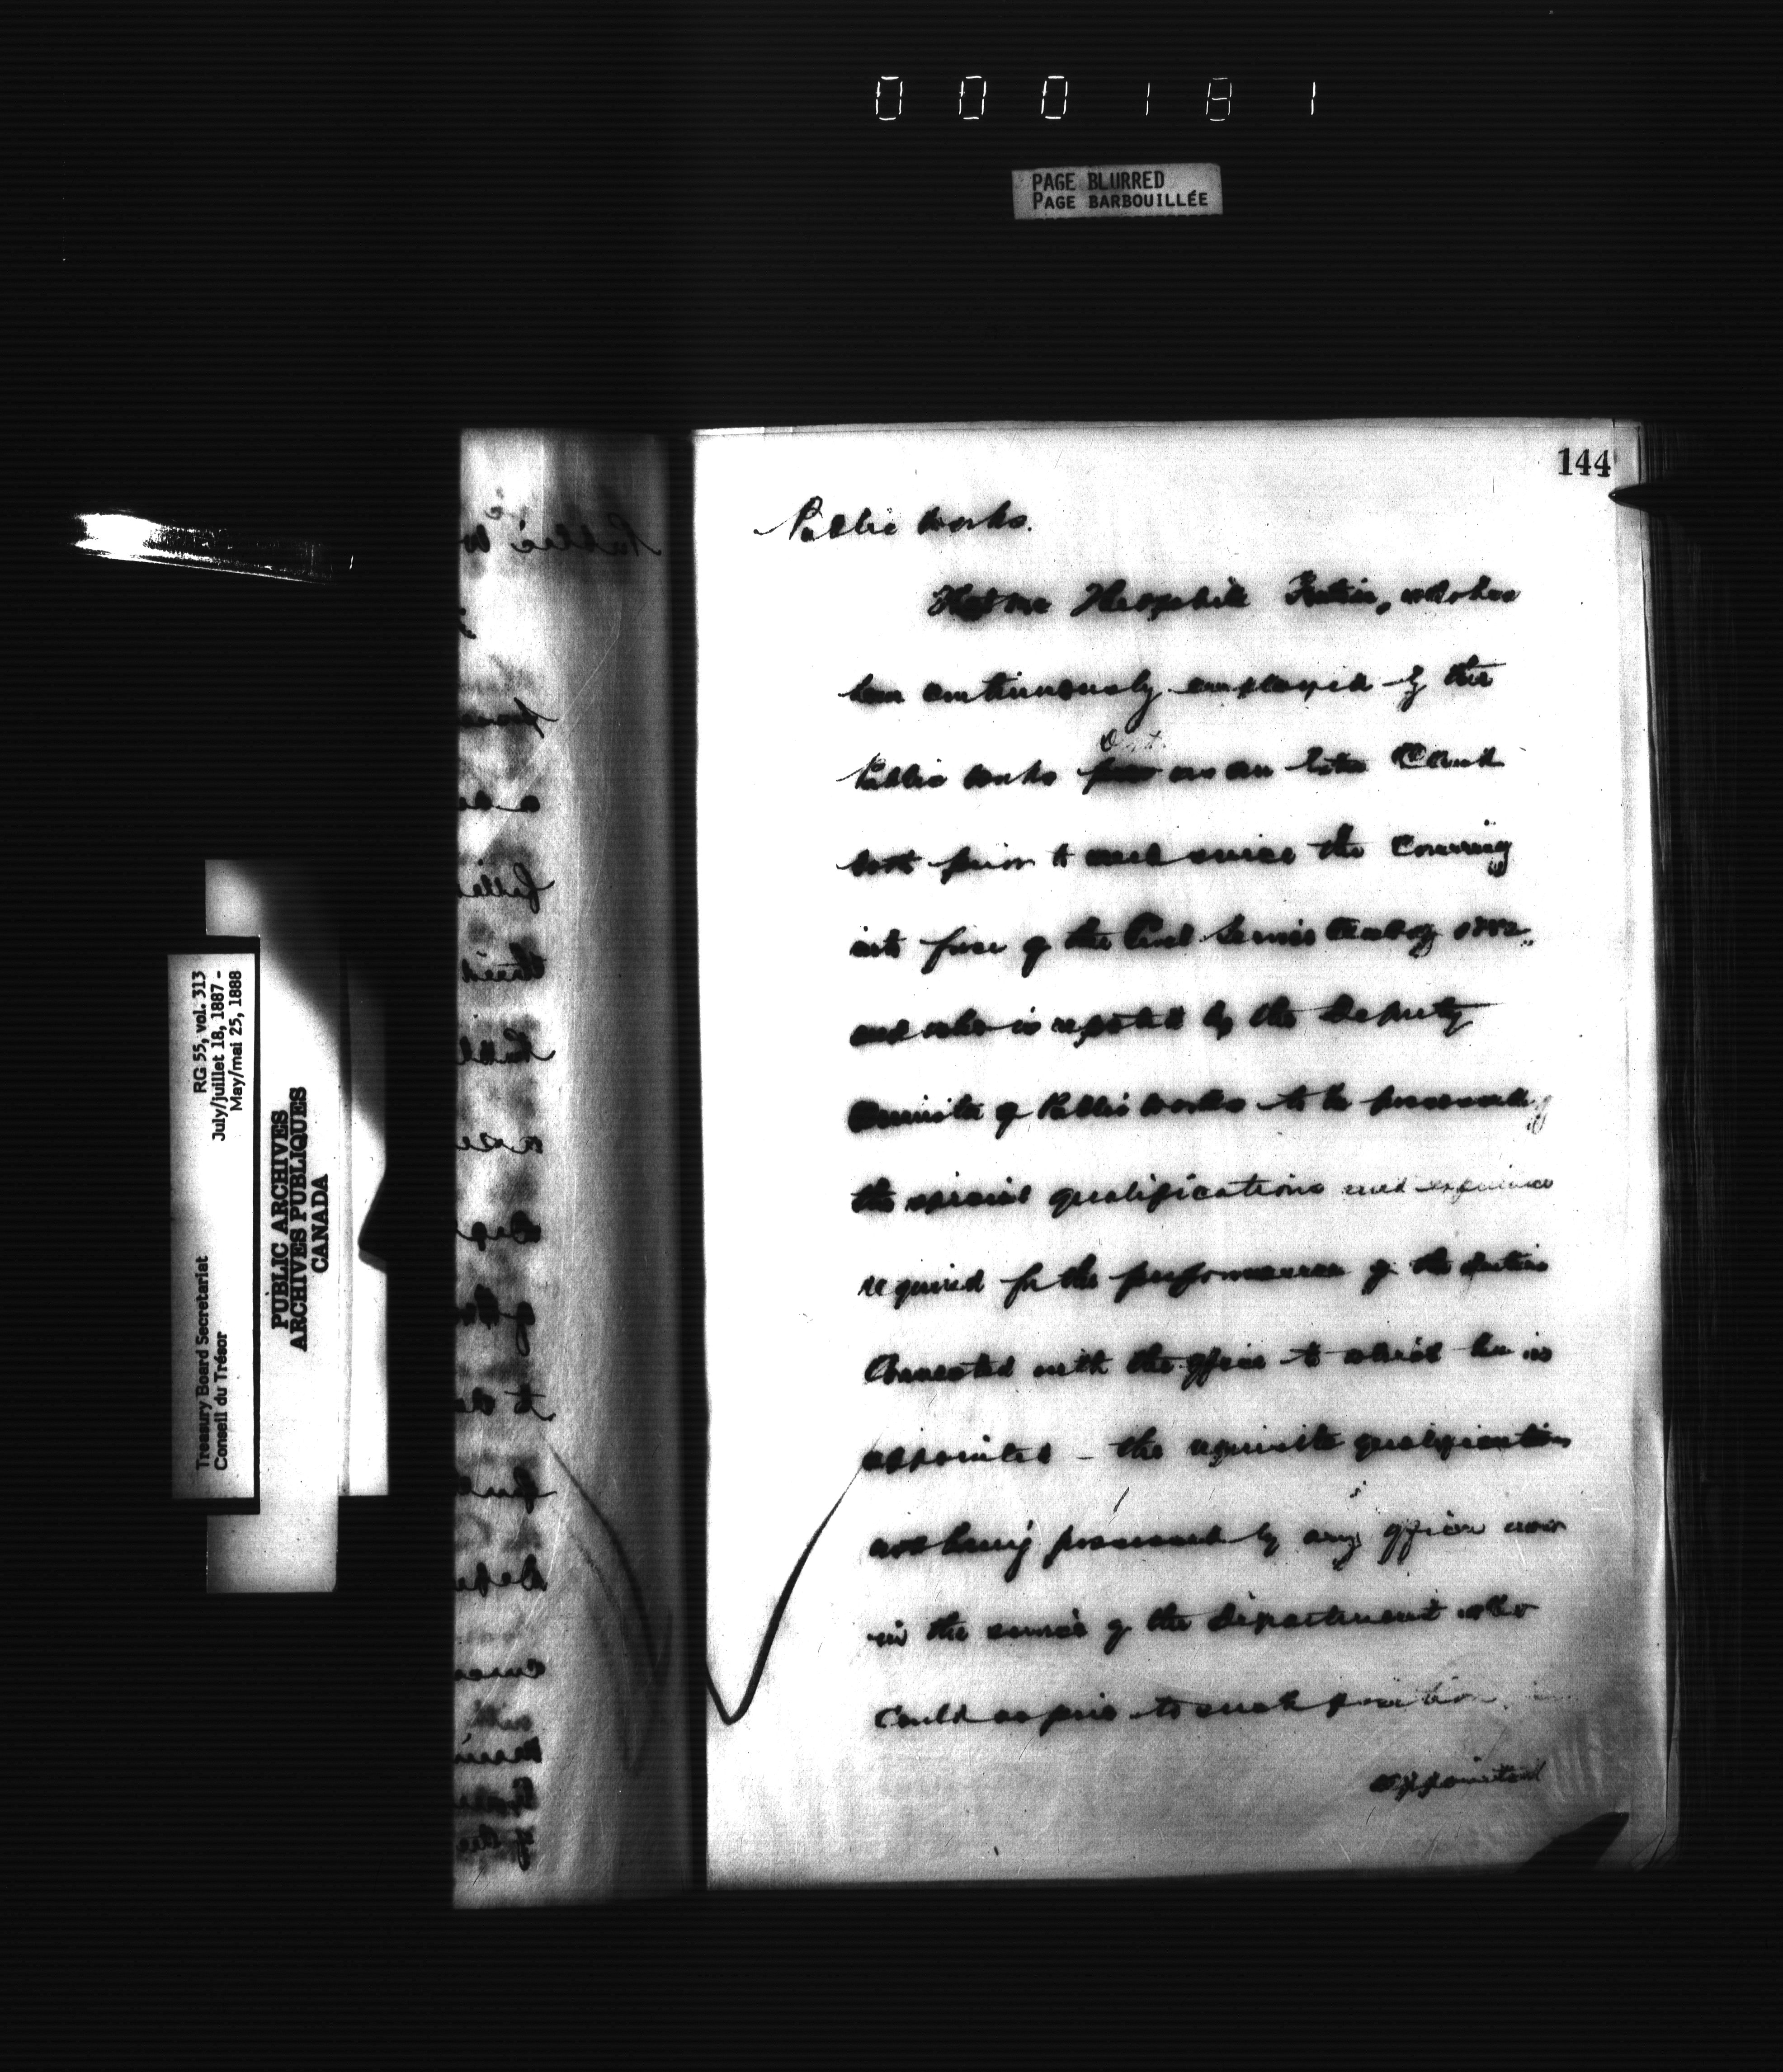 000181
PAGE BLURRED
PAGE BARBOUILLÉE
144
Public Works.
That Mr Theophile, who has
been continuously employed by the
Public Works Dept. as an Extra Clerk
both prior to and since the coming
into force of the Civil Service Act of 1882,
and who is reported by the Deputy
Minister of Public Works to be possessed of
the special qualifications and experience
required for the performance of the duties
connected with the office to which he is
appointed - the requisite qualifications
not being possessed by any officer now
in the service of the Department who
could aspire to such position
appointed
Treasury Board Secretariat
Conseil du Trésor
RG 55, vol. 313
July/juillet 18, 1887 -
May/mai 25, 1888
PUBLIC ARCHIVES
ARCHIVES PUBLIQUES
CANADA